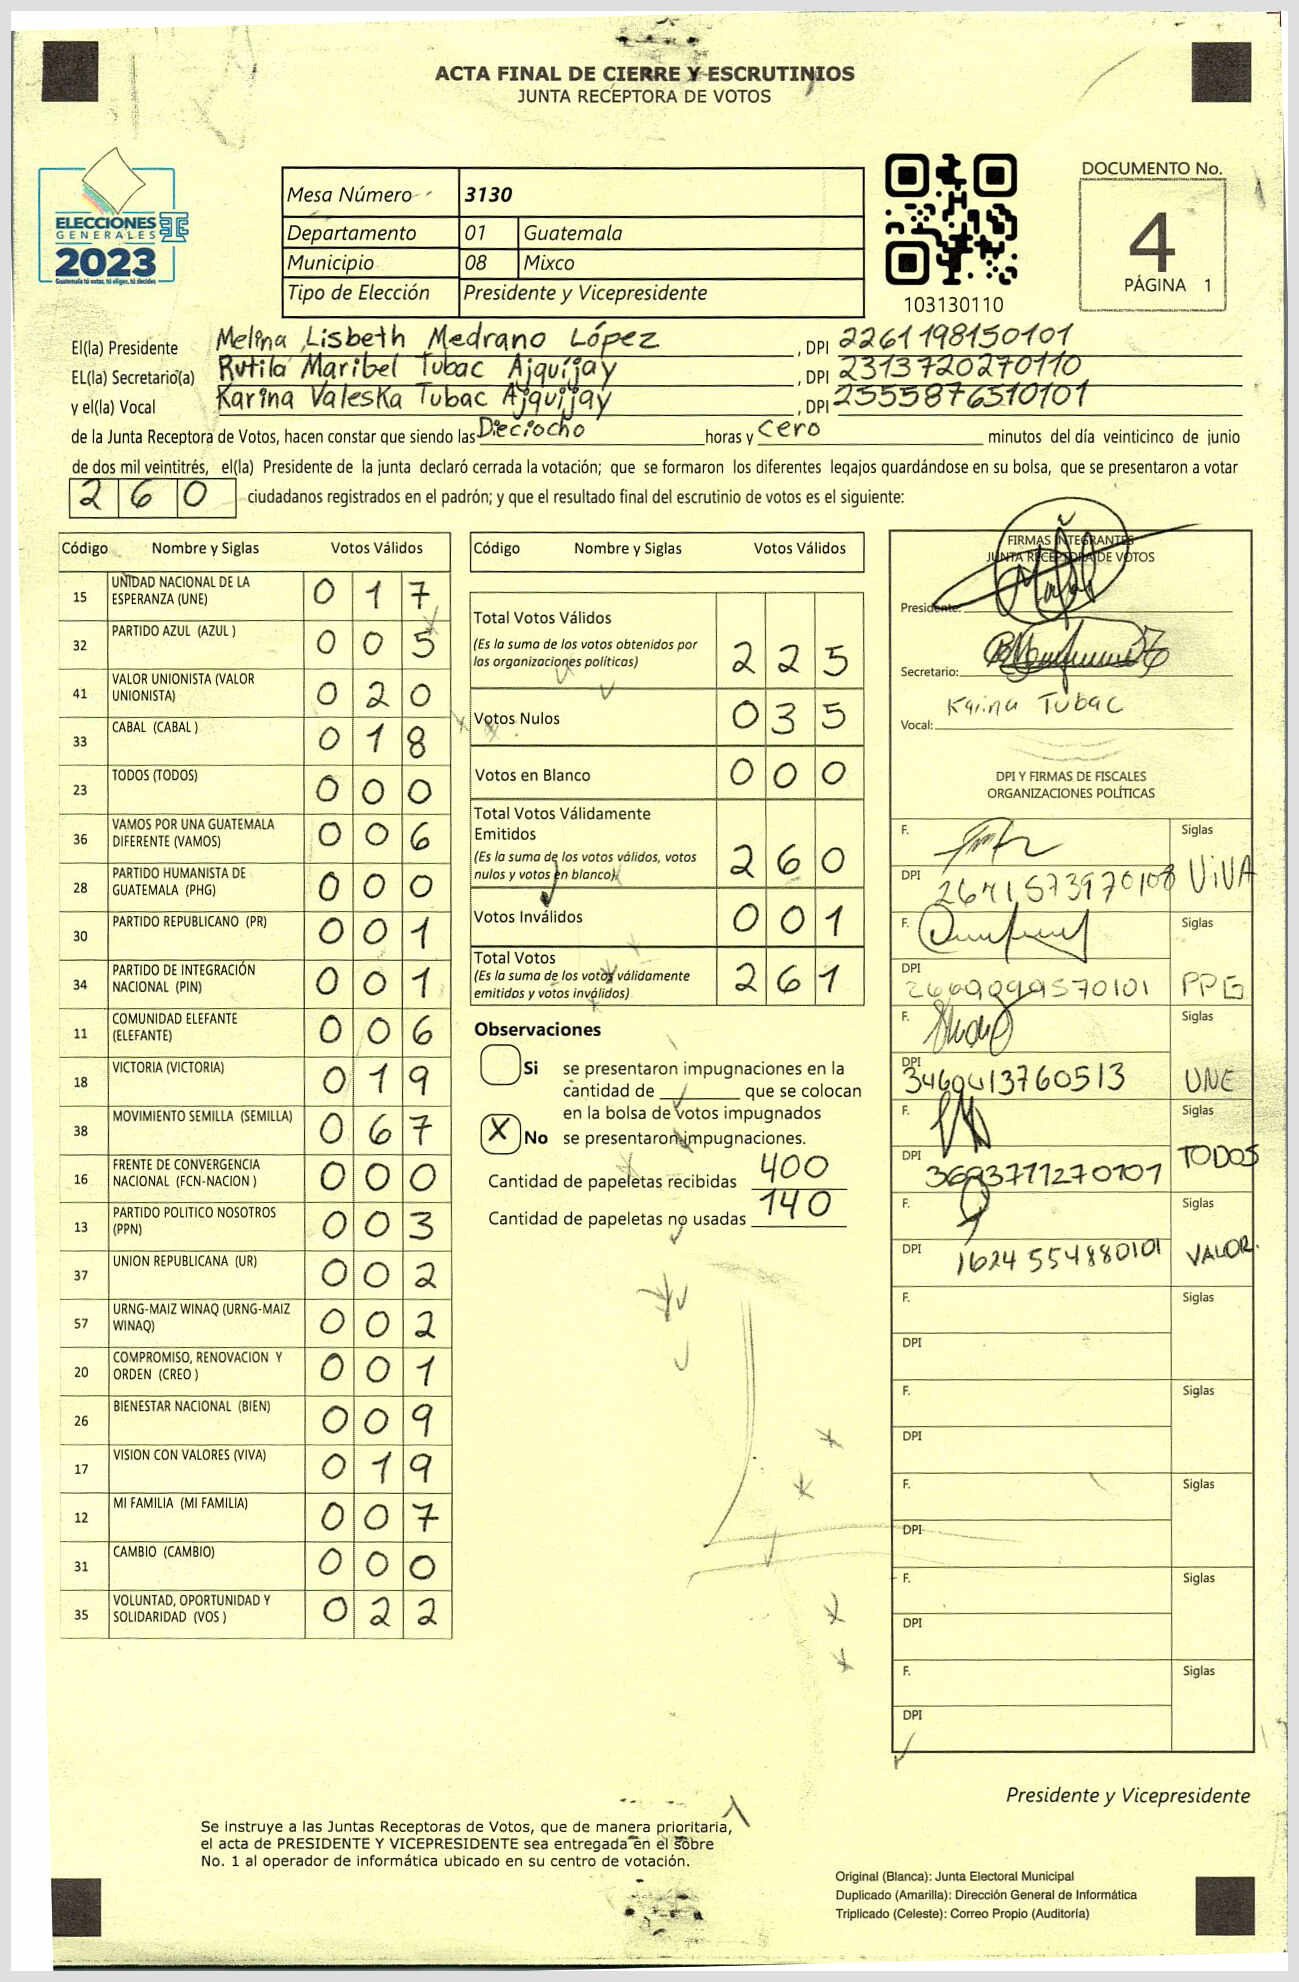 ACTA FINAL DE CIERRE Y ESCRUTINIOS
JUNTA RECEPTORA DE VOTOS
ELECCIONES
GENERALES
2023
Guatemala tú votas, tú eliges, tú decides
Mesa Número 3130
Departamento 01 Guatemala
Municipio 08 Mixco
Tipo de Elección Presidente y Vicepresidente
103130110
DOCUMENTO No.
4
PÁGINA 1
El(la) Presidente Melina Lisbeth Medrano López, DPI 2261198150101
EL(la) Secretario(a) Rutila Maribel Tubac Ajquijay, DPI 2313720270110
y el(la) Vocal Karina Valeska Tubac Ajquijay, DPI 2555876510101
de la Junta Receptora de Votos, hacen constar que siendo las Dieciocho horas y cero minutos del día veinticinco de junio
de dos mil veintitrés, el(la) Presidente de la junta declaró cerrada la votación; que se formaron los diferentes legajos guardándose en su bolsa, que se presentaron a votar
260 ciudadanos registrados en el padrón; y que el resultado final del escrutinio de votos es el siguiente:
Código Nombre y Siglas Votos Válidos
15 UNIDAD NACIONAL DE LA ESPERANZA (UNE) 017
32 PARTIDO AZUL (AZUL ) 005
41 VALOR UNIONISTA (VALOR UNIONISTA) 020
33 CABAL (CABAL ) 018
23 TODOS (TODOS) 000
36 VAMOS POR UNA GUATEMALA DIFERENTE (VAMOS) 006
28 PARTIDO HUMANISTA DE GUATEMALA (PHG) 000
30 PARTIDO REPUBLICANO (PR) 001
34 PARTIDO DE INTEGRACIÓN NACIONAL (PIN) 001
11 COMUNIDAD ELEFANTE (ELEFANTE) 006
18 VICTORIA (VICTORIA) 019
38 MOVIMIENTO SEMILLA (SEMILLA) 067
16 FRENTE DE CONVERGENCIA NACIONAL (FCN-NACION ) 000
13 PARTIDO POLITICO NOSOTROS (PPN) 003
37 UNION REPUBLICANA (UR) 002
57 URNG-MAIZ WINAQ (URNG-MAIZ WINAQ) 002
20 COMPROMISO, RENOVACION Y ORDEN (CREO ) 001
26 BIENESTAR NACIONAL (BIEN) 009
17 VISION CON VALORES (VIVA) 019
12 MI FAMILIA (MI FAMILIA) 007
31 CAMBIO (CAMBIO) 000
35 VOLUNTAD, OPORTUNIDAD Y SOLIDARIDAD (VOS ) 022
Código Nombre y Siglas Votos Válidos
Total Votos Válidos
(Es la suma de los votos obtenidos por
las organizaciones políticas) 225
Votos Nulos 035
Votos en Blanco 000
Total Votos Válidamente
Emitidos
(Es la suma de los votos válidos, votos
nulos y votos en blanco) 260
Votos Inválidos 001
Total Votos
(Es la suma de los votos válidamente
emitidos y votos inválidos) 261
Observaciones
Si se presentaron impugnaciones en la
cantidad de que se colocan
en la bolsa de votos impugnados
X No se presentaron impugnaciones.
Cantidad de papeletas recibidas 400
Cantidad de papeletas no usadas 140
FIRMAS INTEGRANTES
JUNTA RECEPTORA DE VOTOS
Presidente:
Secretario:
Vocal: Karina Tubac
DPI Y FIRMAS DE FISCALES
ORGANIZACIONES POLÍTICAS
F. Siglas
DPI 2641573970108 VIVA
F. Siglas
DPI PPG
F. Siglas
DPI 3460413760513 UNE
F. Siglas
DPI TODOS
F. Siglas
DPI 1624554880101 VALOR.
F. Siglas
DPI
F. Siglas
DPI
F. Siglas
DPI
F. Siglas
DPI
F. Siglas
DPI
Presidente y Vicepresidente
Se instruye a las Juntas Receptoras de Votos, que de manera prioritaria,
el acta de PRESIDENTE Y VICEPRESIDENTE sea entregada en el sobre
No. 1 al operador de informática ubicado en su centro de votación.
Original (Blanca): Junta Electoral Municipal
Duplicado (Amarilla): Dirección General de Informática
Triplicado (Celeste): Correo Propio (Auditoría)